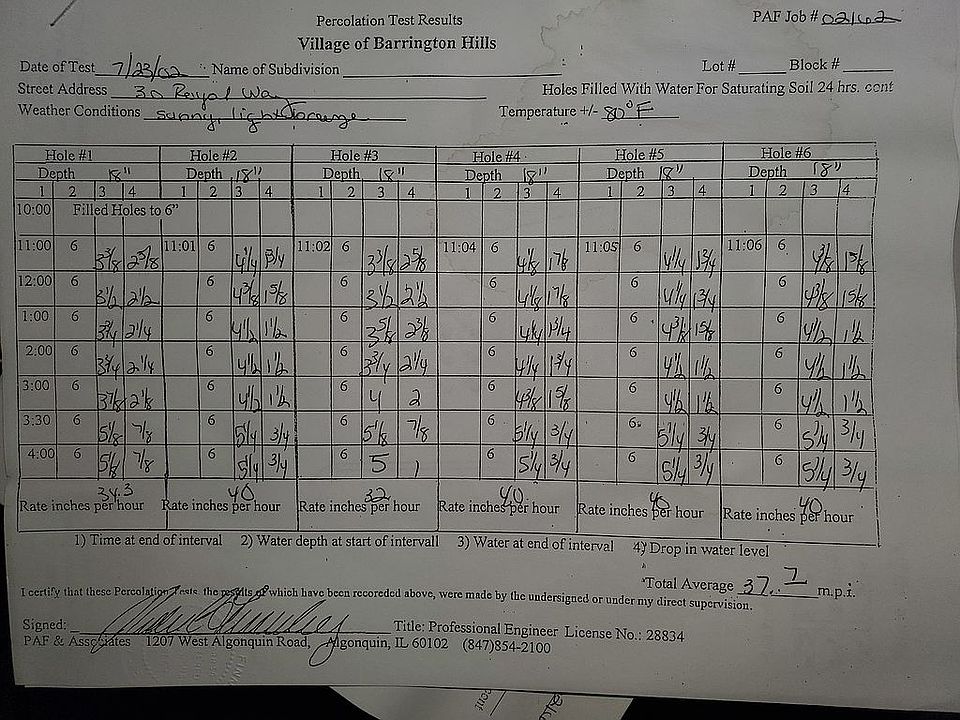 Percolation Test Results
PAF Job # 02162
Village of Barrington Hills
Date of Test 7/23/02 Name of Subdivision Lot # Block #
Street Address 30 Royal Way Holes Filled With Water For Saturating Soil 24 hrs. cont
Weather Conditions sunny, light breeze Temperature +/- 80°F
Hole #1 Hole #2 Hole #3 Hole #4 Hole #5 Hole #6
Depth 18" Depth 18" Depth 18" Depth 18" Depth 18" Depth 18"
1 2 3 4 1 2 3 4 1 2 3 4 1 2 3 4 1 2 3 4 1 2 3 4
10:00 Filled Holes to 6"
11:00 6 3 3/8 2 5/8 11:01 6 4 1/4 1 3/4 11:02 6 3 3/8 2 5/8 11:04 6 4 1/8 1 7/8 11:05 6 4 1/4 1 3/4 11:06 6 4 3/8 1 5/8
12:00 6 3 1/2 2 1/2 6 4 3/8 1 5/8 6 3 1/2 2 1/2 6 4 1/8 1 7/8 6 4 1/4 1 3/4 6 4 3/8 1 5/8
1:00 6 3 3/4 2 1/4 6 4 1/2 1 1/2 6 3 5/8 2 3/8 6 4 1/4 1 3/4 6 4 3/8 1 5/8 6 4 1/2 1 1/2
2:00 6 3 3/4 2 1/4 6 4 1/2 1 1/2 6 3 3/4 2 1/4 6 4 1/4 1 3/4 6 4 1/2 1 1/2 6 4 1/2 1 1/2
3:00 6 3 7/8 2 1/8 6 4 1/2 1 1/2 6 4 2 6 4 3/8 1 5/8 6 4 1/2 1 1/2 6 4 1/2 1 1/2
3:30 6 5 1/8 7/8 6 5 1/4 3/4 6 5 1/8 7/8 6 5 1/4 3/4 6 5 1/4 3/4 6 5 1/4 3/4
4:00 6 5 1/8 7/8 6 5 1/4 3/4 6 5 1 6 5 1/4 3/4 6 5 1/4 3/4 6 5 1/4 3/4
34.3 40 32 40 40 40
Rate inches per hour Rate inches per hour Rate inches per hour Rate inches per hour Rate inches per hour Rate inches per hour
1) Time at end of interval 2) Water depth at start of intervall 3) Water at end of interval 4) Drop in water level
Total Average 37.7 m.p.i.
I certify that these Percolation Tests the results of which have been recoreded above, were made by the undersigned or under my direct supervision.
Signed: Title: Professional Engineer License No.: 28834
PAF & Assgciates 1207 West Algonquin Road, Algonquin, IL 60102 (847)854-2100